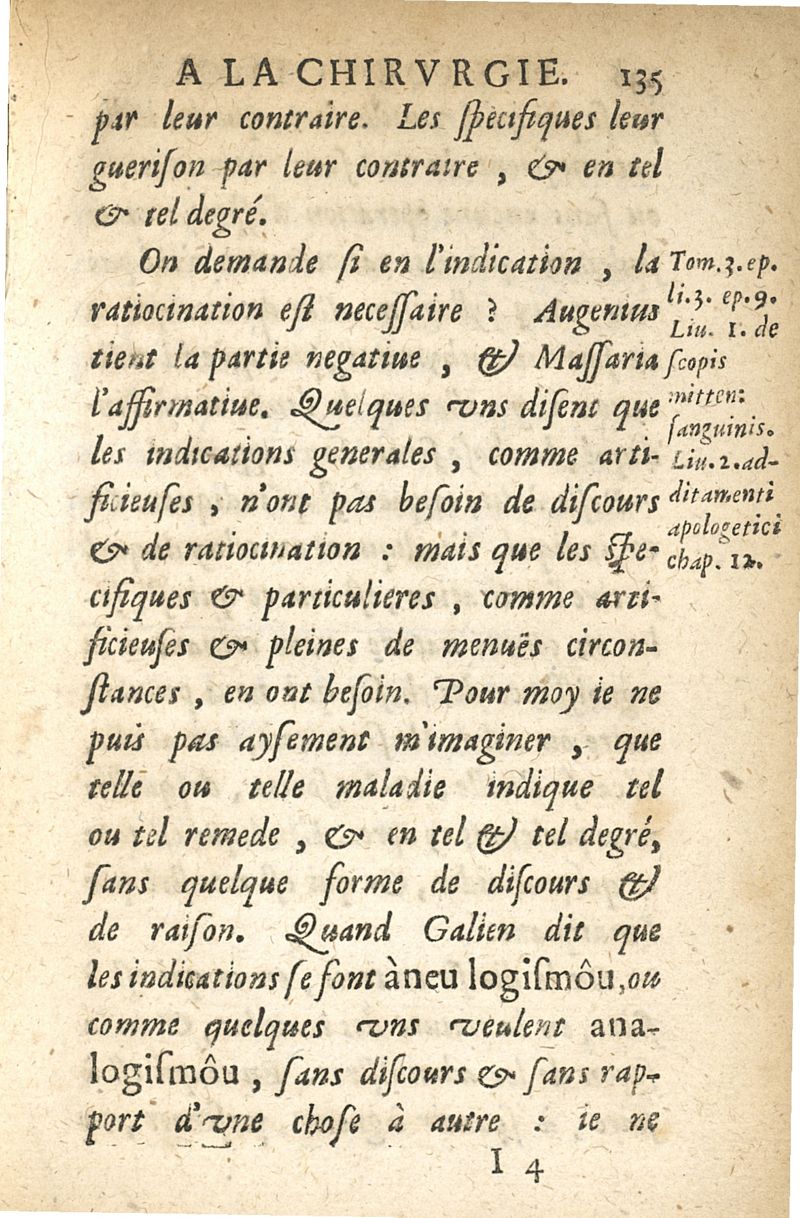 A LA CHIRVRGIE. 135
par leur contraire. Les ſpecifiques leur
gueriſon par leur contraire , & en tel
& tel degré.
On demande ſi en l'indication , la
ratiocination eſt neceſſaire ? Augenius
tient la partie negatiue , & Maſſaria
l'affirmatiue. Quelques vns diſent que
les indications generales , comme arti-
ficieuſes , n'ont pas beſoin de diſcours
& de ratiocination : mais que les ſpe-
cifiques & particulieres , comme arti-
ficieuſes & pleines de menuës circon-
ſtances , en ont beſoin. Pour moy ie ne
puis pas ayſement m'imaginer , que
telle ou telle maladie indique tel
ou tel remede , & en tel & tel degré,
ſans quelque forme de diſcours &
de raiſon. Quand Galien dit que
les indications ſe font àneu logiſmôu, ou
comme quelques vns veulent ana-
logiſmôu , ſans diſcours & ſans rap-
port d'vne choſe à autre : ie ne
I 4
Tom. 3. ep.
li. 3. ep. 9.
Liu. 1. de
ſcopis
mitten:
ſanguinis.
Liu. 2. ad-
ditamenti
apologetici
chap. 12.